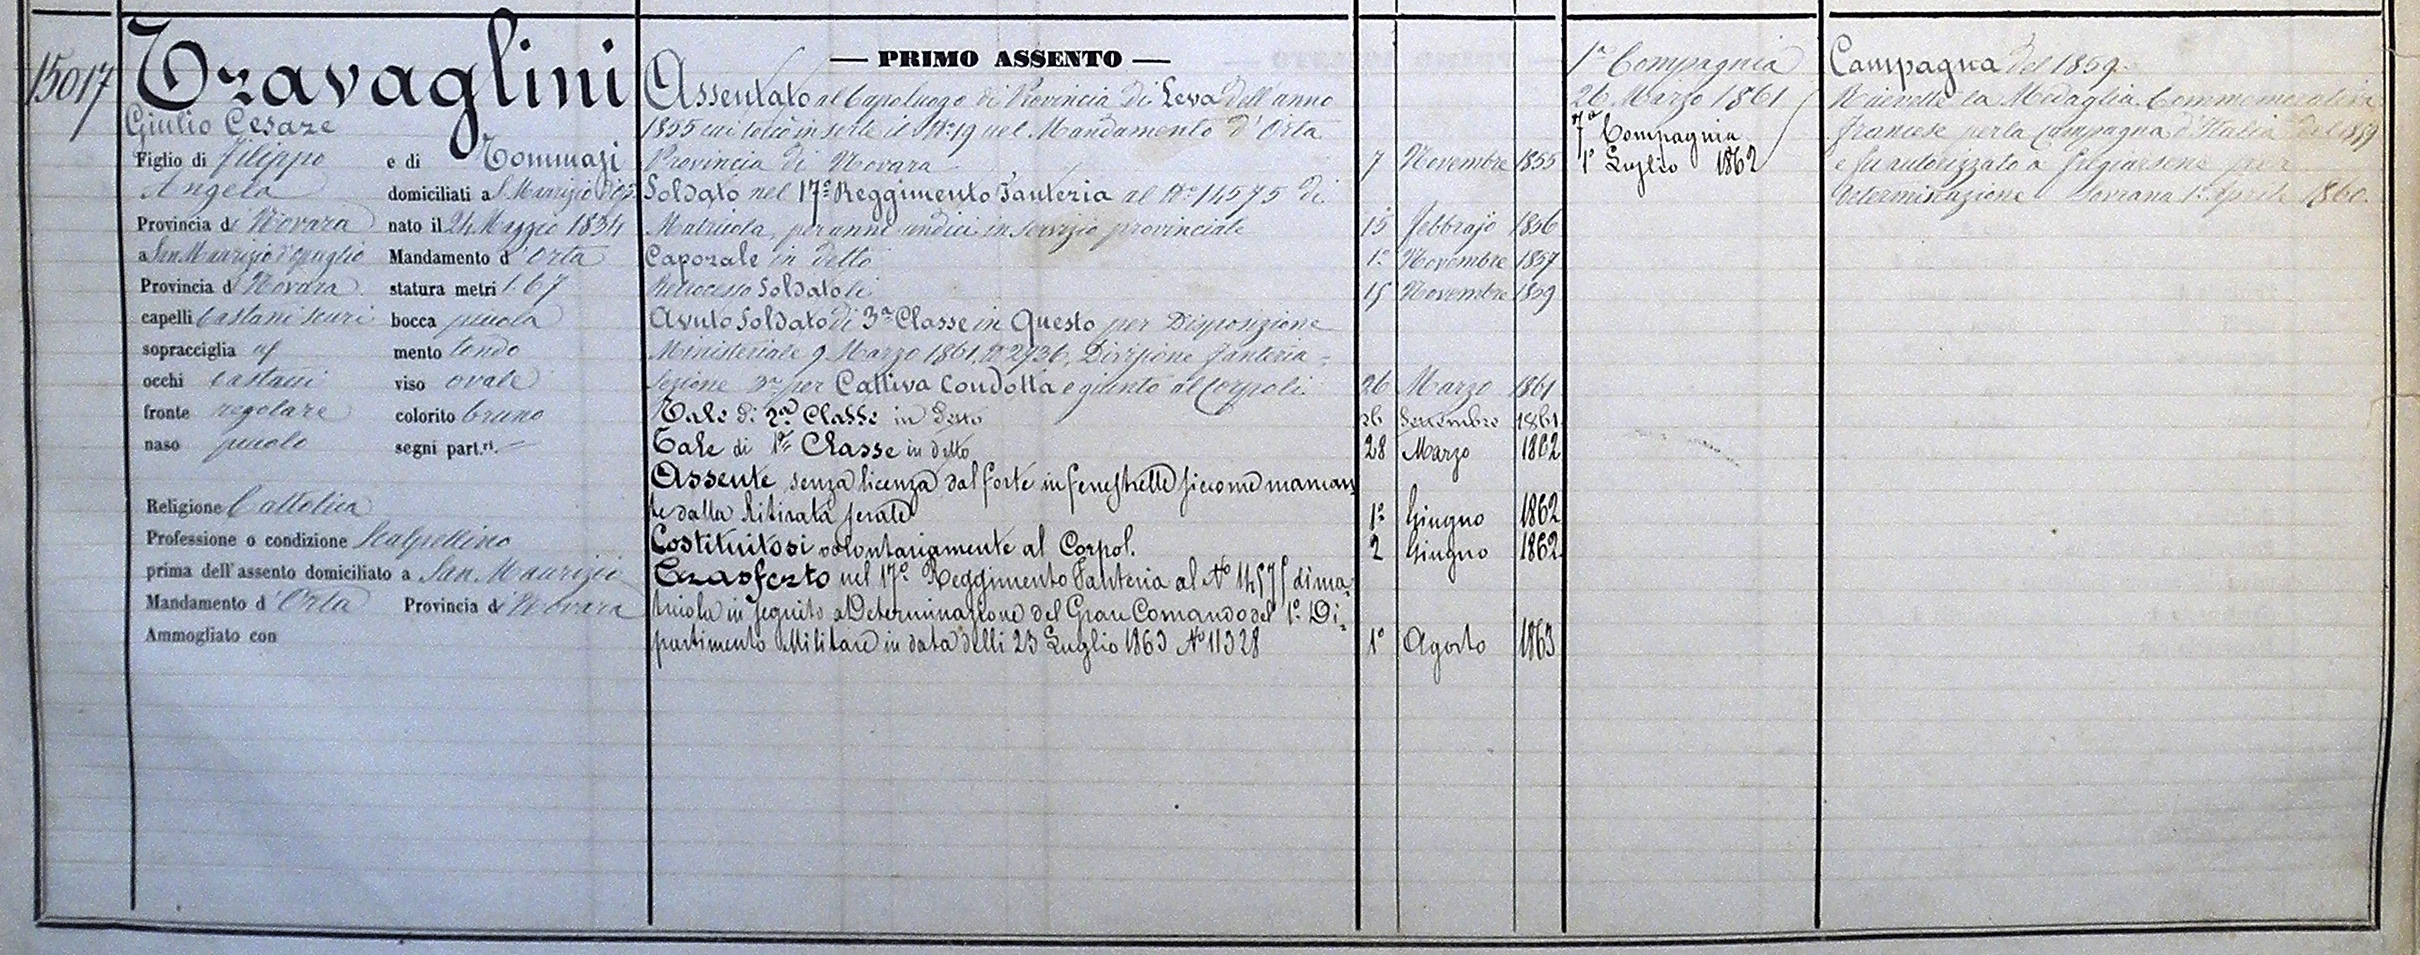 15017
Travaglini
Giulio Cesare
Figlio di Filippo e di Tommasi
Angela domiciliati a S. Maurizio d'Op.
Provincia di Novara nato il 24 Maggio 1834
a San Maurizio d'Opaglio Mandamento d'Orta
Provincia di Novara statura metri 1.67
capelli Castani scuri bocca piccola
sopracciglia id mento tondo
occhi castani viso ovale
fronte regolare colorito bruno
naso piccolo segni part.ri —
Religione Cattolica
Professione o condizione Scalpellino
prima dell'assento domiciliato a San Maurizio
Mandamento d'Orta Provincia di Novara
Ammogliato con
— PRIMO ASSENTO —
Assentato al Capoluogo di Provincia di Leva dell'anno
1855 cui toccò in sorte il N° 19 nel Mandamento d'Orta
Provincia di Novara 7 Novembre 1855
Soldato nel 17° Reggimento Fanteria al N° 14575 di
Matricola, per anni undici in servizio provinciale 15 Febbrajo 1856
Caporale in detto 1° Novembre 1857
Retrocesso Soldato li 15 Novembre 1859
Avuto Soldato di 3a Classe in Questo per Disposizione
Ministeriale 9 Marzo 1861, N° 2936, Divisione Fanteria =
Sezione per Cattiva Condotta e giunto al Corpo li 26 Marzo 1861
Tale di 2a Classe in detto 26 Settembre 1861
Tale di 1a Classe in detto 28 Marzo 1862
Assente senza licenza dal forte in Fenestrelle siccome mancan
te dalla Ritirata serale 1° Giugno 1862
Costituitosi volontariamente al Corpo l. 2 Giugno 1862
Trasferto nel 17° Reggimento Fanteria al N° 14575 di ma=
tricola in seguito a Determinazione del Gran Comando del 1° Di=
partimento Militare in data delli 23 Luglio 1863 N° 11328 1° Agosto 1863
1a Compagnia
26 Marzo 1861
7a Compagnia
1° Luglio 1862
Campagna del 1859
Ricevette la Medaglia Commemorativa
francese per la Campagna d'Italia del 1859
e fu autorizzato a fregiarsene per
Determinazione Sovrana 1° Aprile 1860.